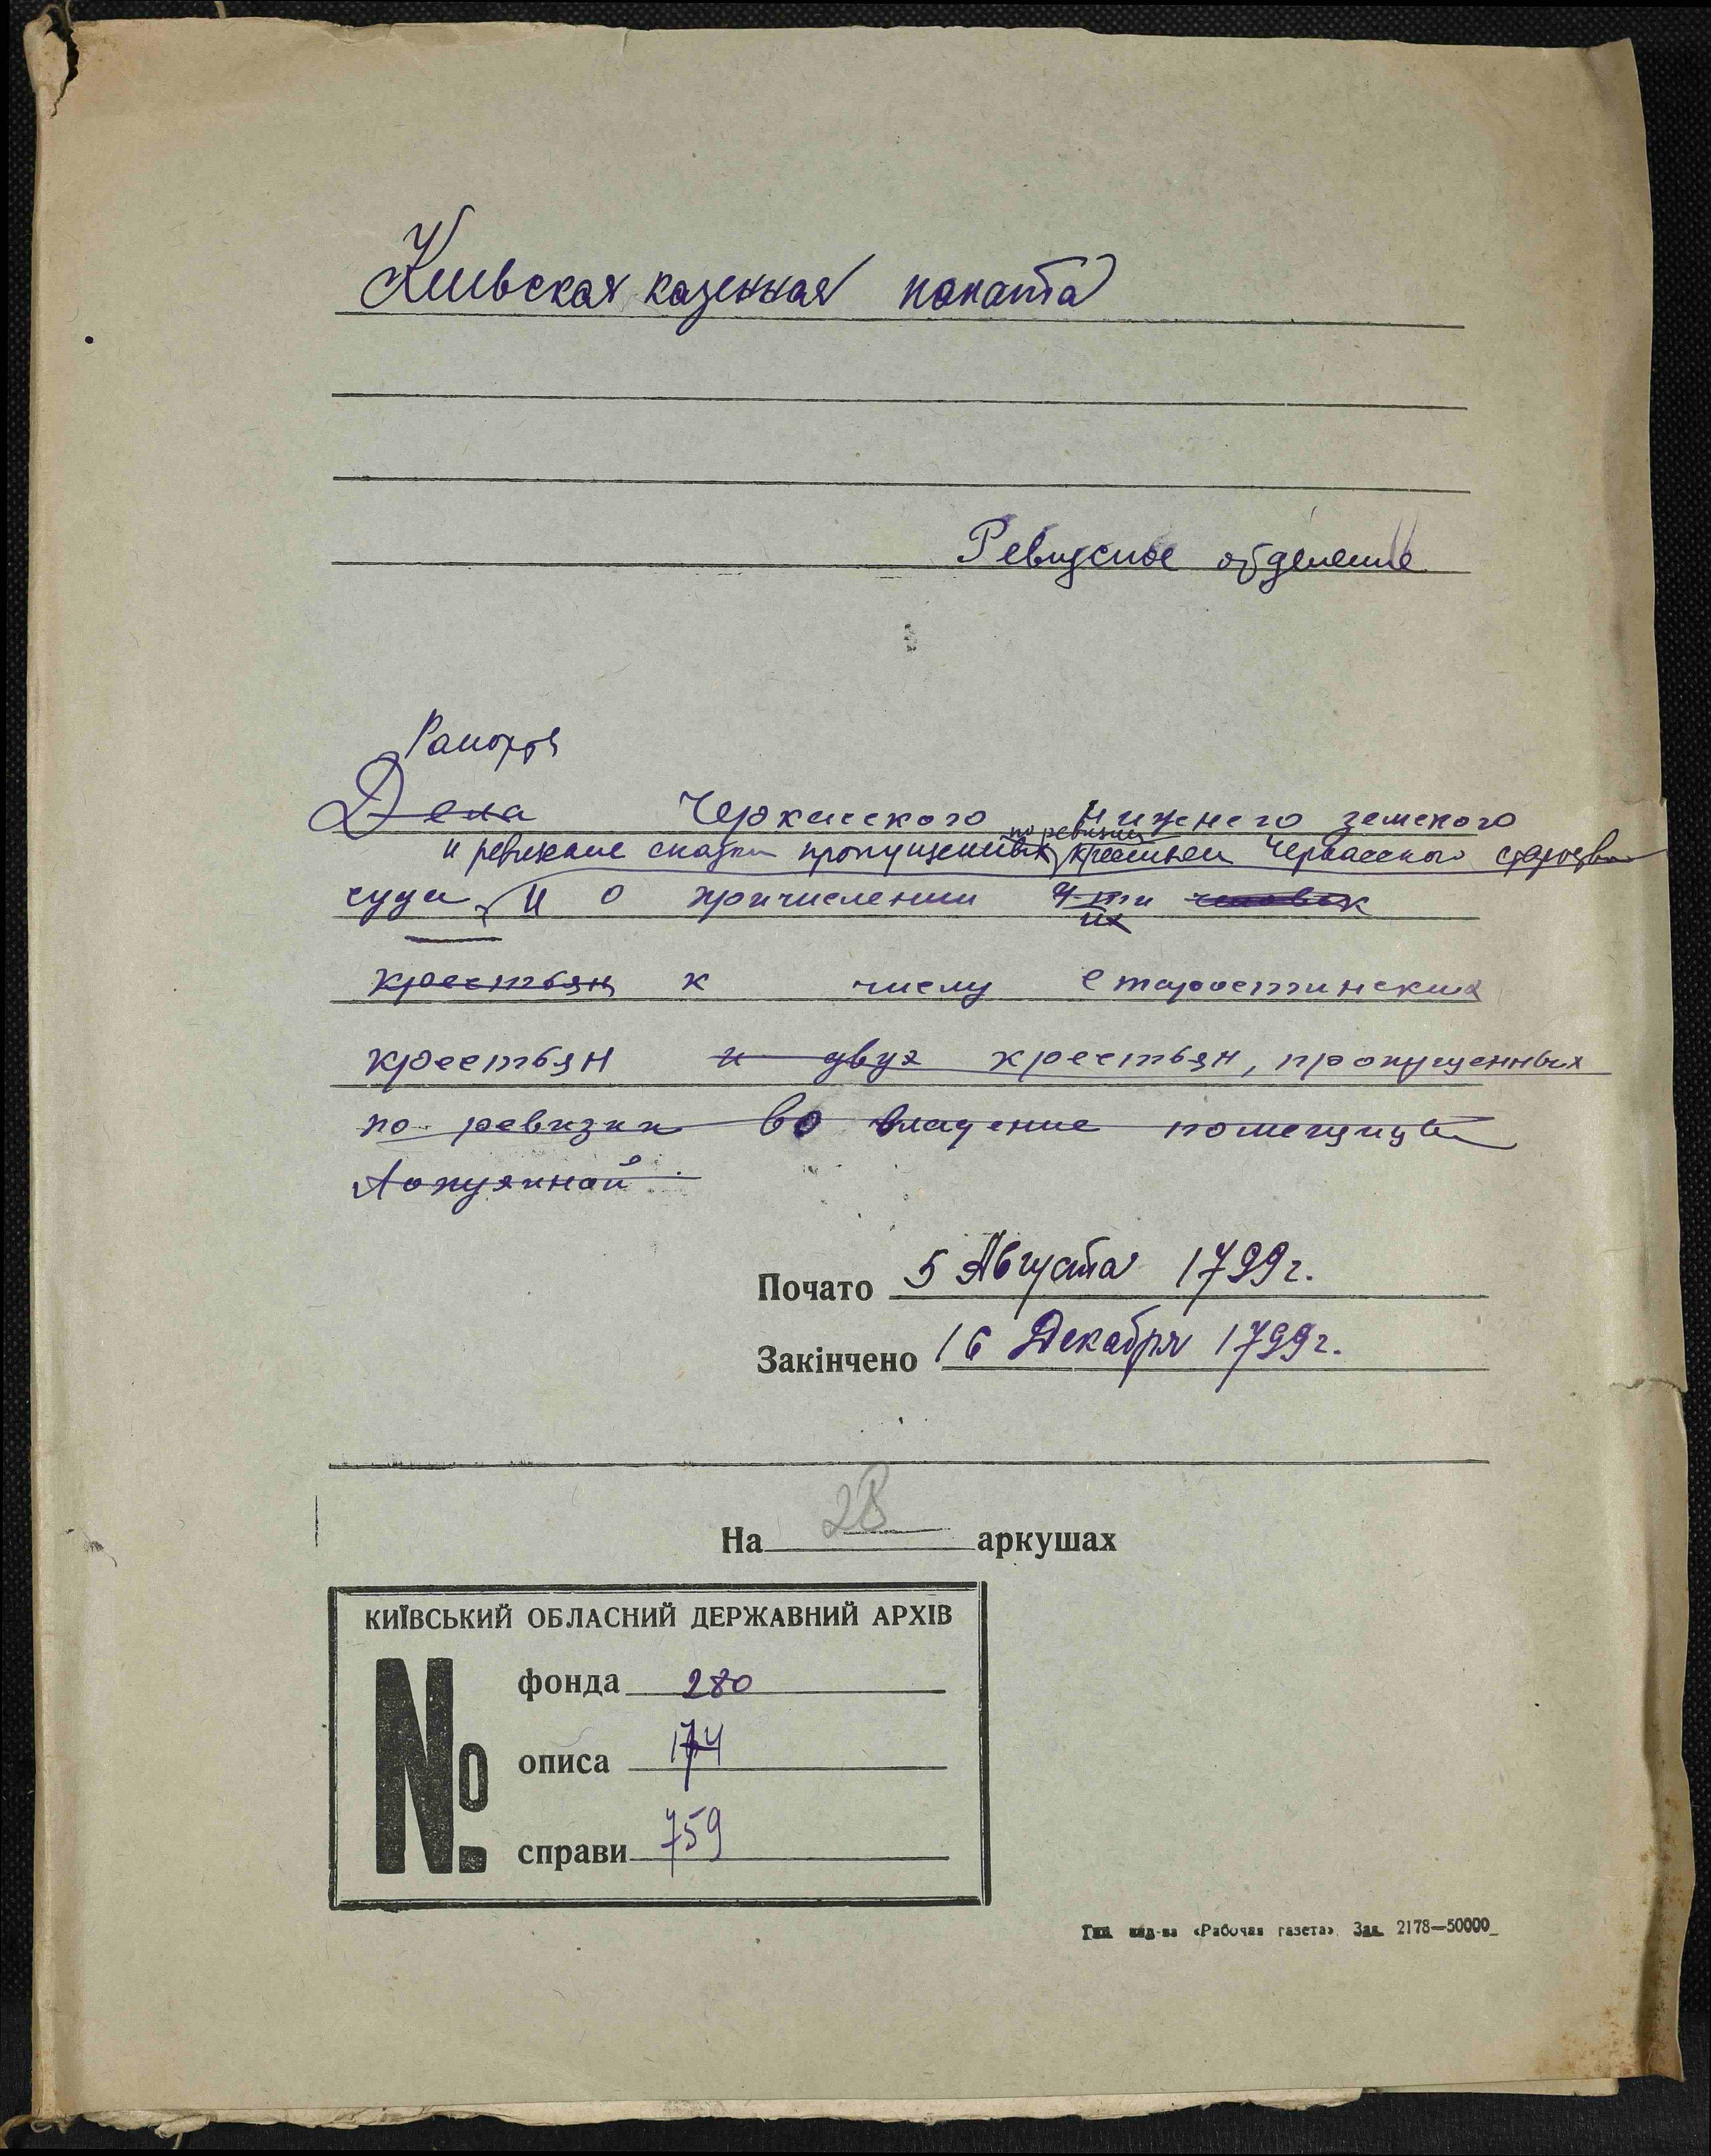 Киевская казенная палата
Ревизское отделение
Рапорта
Дела Черкасского нижнего земского
по ревизии
и ревизские сказки пропущенных крестьян Черкасского староства
суда и о причислении 4-ти человек
их
крестьян к числу старостинских
крестьян и двух крестьян, пропущенных
по ревизии во владение помещицы
Почато 5 Августа 1799 г.
Закінчено 16 Декабря 1799 г.
На 28 аркушах
КИЇВСЬКИЙ ОБЛАСНИЙ ДЕРЖАВНИЙ АРХІВ
№
фонда 280
описа 174
справи 759
Тип. вид-ва «Рабочая газета» Зак. 2178—50000